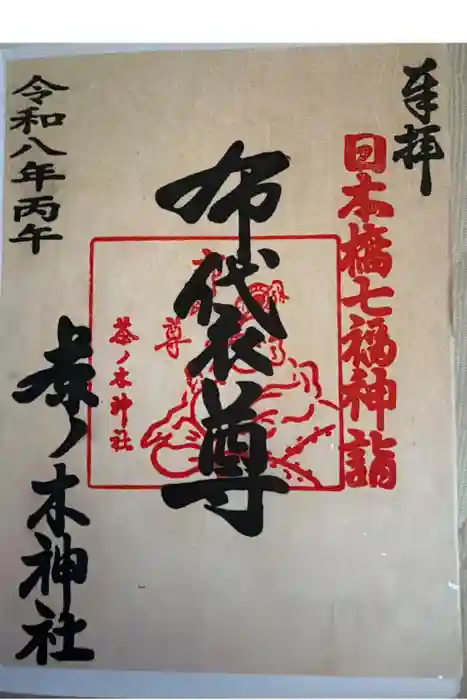 奉拝
日本橋七福神詣
布袋尊
尊
茶ノ木神社
令和八年丙午
茶ノ木神社